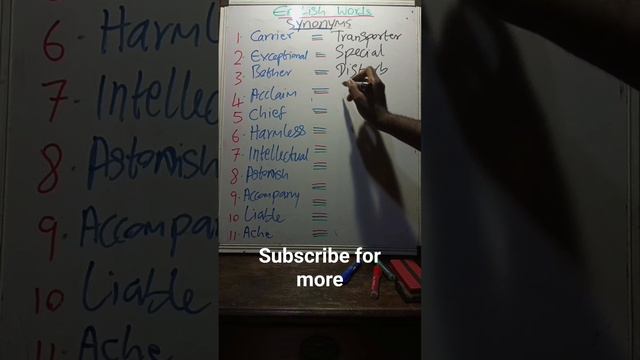 English Words
Synonyms
1. Carrier = Transporter
2. Exceptional = Special
3. Bather = Disturb
4. Acclaim =
5 Chief =
6. Harmless =
7. Intellectual =
8. Astonish =
9. Accompany =
10 Liable =
11. Ache =
Subscribe for
more
6. Harml
7. Intellec
8. Astonish
9. Accompa
10 Liable
11. Ache